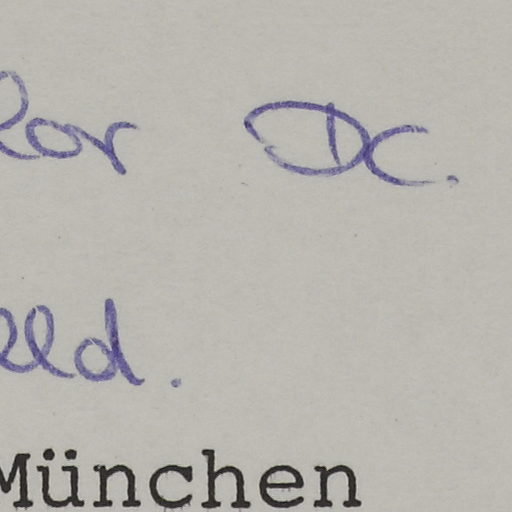 or Dr.
ld.
München